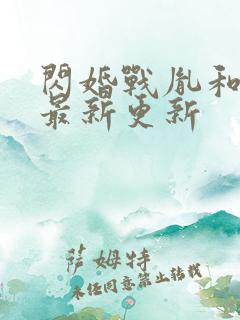 閃婚戰胤和
最新更新
薩姆特
未经同意禁止转载